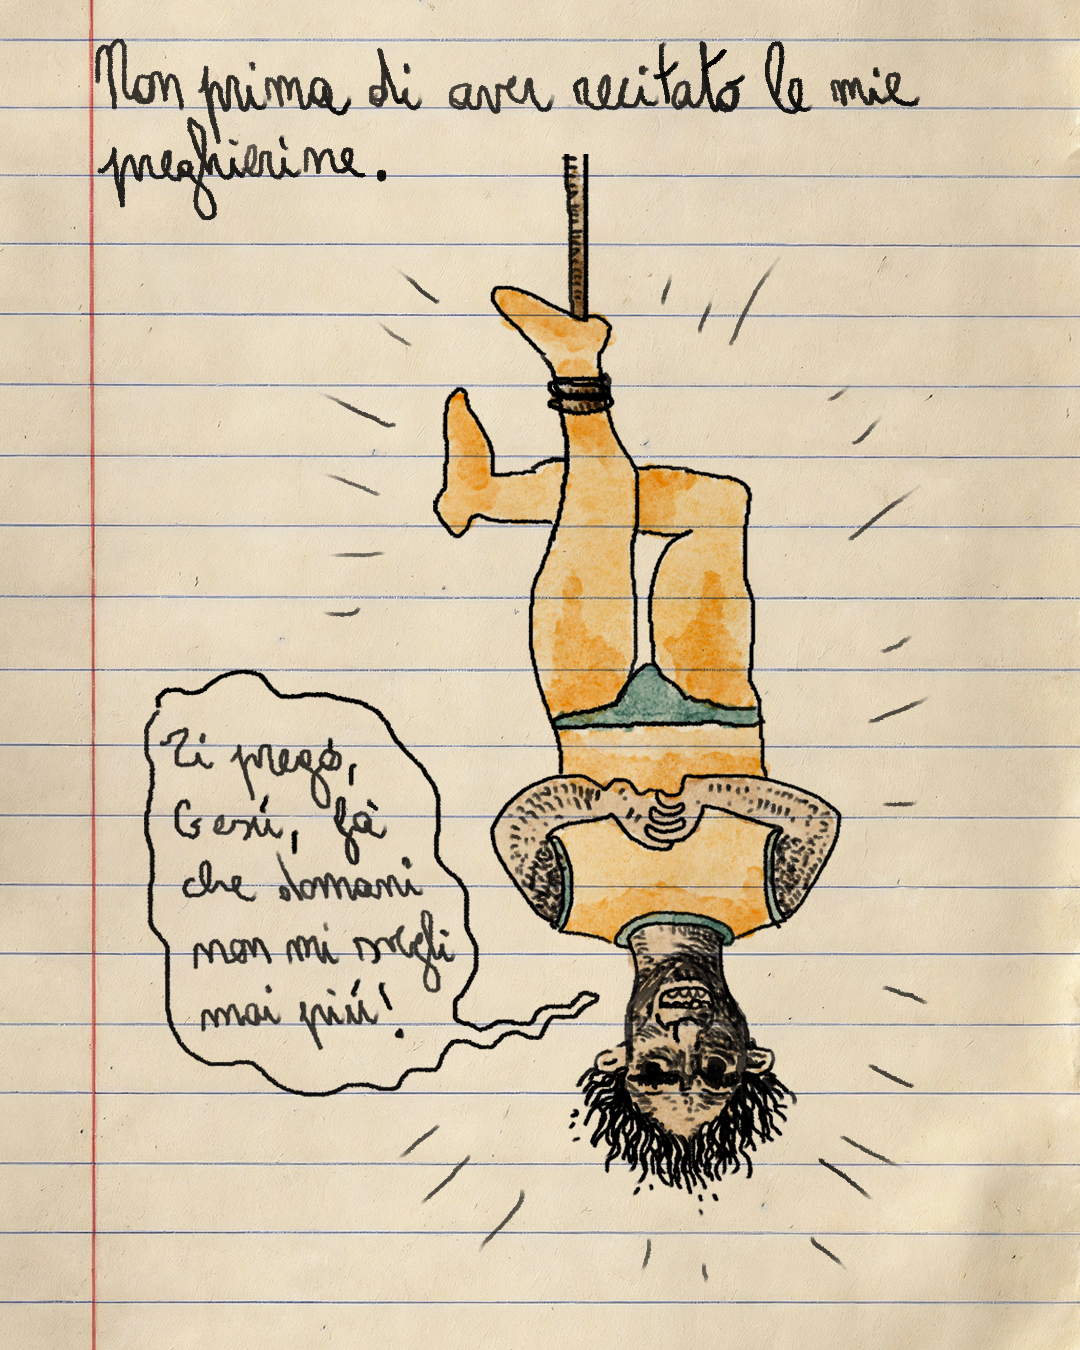 Non prima di aver recitato le mie
preghierine.
Ti prego,
Gesú, fà
che domani
non mi svegli
mai piú!